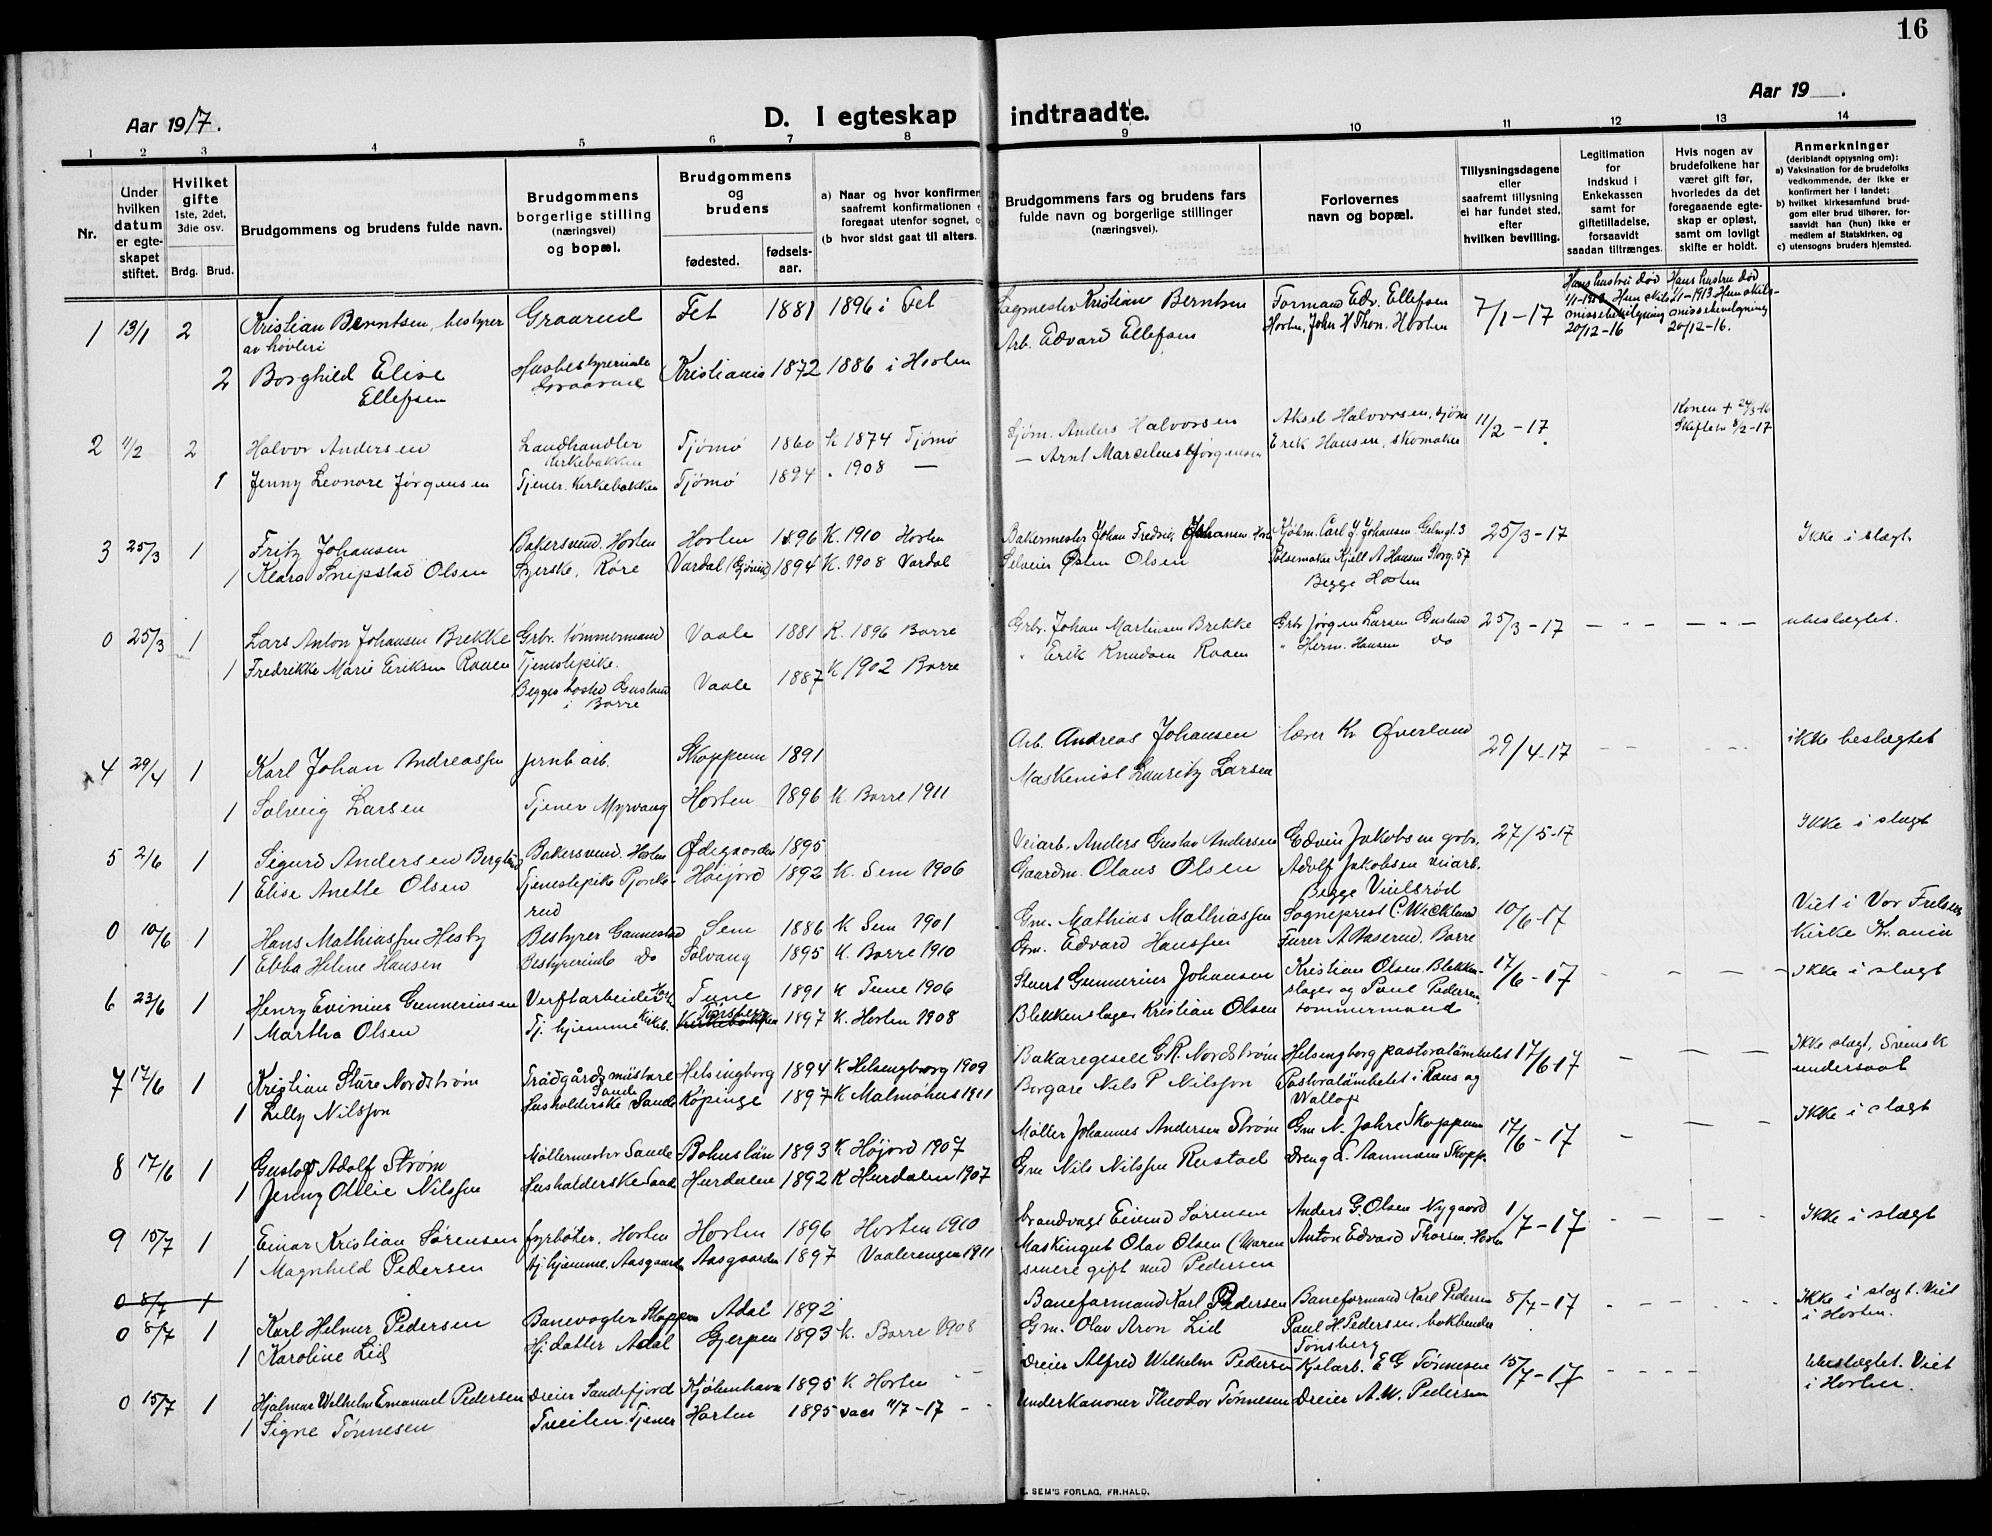 16
Aar 1917.
D. I egteskap indtraadte.
Aar 19 .
1 2 3 4 5 6 7 8 9 10 11 12 13 14
Nr.
Under hvilken datum er egteskapet stiftet.
Hvilket gifte 1ste, 2det, 3die osv.
Brdg. Brud.
Brudgommens og brudens fulde navn.
Brudgommens borgerlige stilling (næringsvei) og bopæl.
Brudgommens og brudens
fødested.
fødsels-aar.
a) Naar og hvor konfirmer
saafremt konfirmationen
foregaat utenfor sognet,
(b hvor sidst gaat til alters.
Brudgommens fars og brudens fars fulde navn og borgerlige stillinger (næringsvei).
Forlovernes navn og bopæl.
Tillysningsdagene eller saafremt tillysning ei har fundet sted, efter hvilken bevilling.
Legitimation for Indskud i Enkekassen samt for giftetilladelse, forsaavidt saadan tiltrænges.
Hvis nogen av brudefolkene har været gift før, hvorledes da det foregaaende egteskap er opløst, samt om lovligt skifte er holdt.
Anmerkninger (deriblandt opjysning om): a) Vaksination for de brudefolks vedkommende, der ikke er konfirmert her i landet; b) hvilket kirkesamfund brudgom eller brud tilhører, forsaavidt han (hun) ikke er medlem af Statskirken, og c) utensogns bruders hjemsted.
1 13/1 2 Kristian Berntsen, bestyrer av høvleri Graarud Fet 1881 1896 i Fet Sagmester Kristian Berntsen Formand Edv. Ellefsen Horten, John H Thon. Horten 7/1-17 Hans hustru død 1/1-1913 Hun skilsmissebevilgning 20/12-16 Hans hustru død 1/1-1913 Hun skilsmissebevilgning 20/12-16.
2 Borghild Elise Ellefsen Husbestyrerinde Graarud Kristiania 1872 1886 i Horten Arb. Edvard Ellefsen
2 11/2 2 Halvor Andersen Landhandler Kirkebakken Tjømø 1860 k 1874 Tjømø Sjøm. Anders Halvorsen Aksel Halvorsen, sjøm 11/2-17 Konen + 24/3-16 Skiftesm 8/2-17
1 Jenny Leonore Jørgensen Tjener. Kirkebakken Tjømø 1894 " 1908 — — Arnt Marcelius Jørgensen Erik Hansen, skomaker
3 25/3 1 Fritz Johansen Bakersvend. Horten Horten 1896 K. 1910 Horten Bakermester Johan Fredrik Johansen Kjøbm. Carl J. Johansen 25/3-17 Ikke i slægt
1 Klara Snipstad Olsen Syerske, Køre Vardal (Gjøvik) 1894 K. 1908 Vardal Selveier Østen Olsen Pølsemaker Kjell A Hansen Storg. 57 Begge Horten
0 25/3 1 Lars Anton Johansen Brekke Grbr. tømmermand Vaale 1881 K. 1896 Borre Grbr. Johan Martinsen Brekke Grbr Jørgen Larsen Gusland 25/3-17 ubeslægtet.
1 Fredrikke Marie Eriksen Raaen Tjenestepike. Begges bosted Gusland i Borre Vaale 1887 K 1902 Borre " Erik Knudsen Raaen " Herm. Hansen do
4 29/4 1 Karl Johan Andreassen jrnb. arb. Skoppum 1891 Arb. Andreas Johansen lærer Kr Øverland 29/4-17 ikke beslægtet
1 Solveig Larsen Tjener Myrvang Horten 1896 K. Borre 1911 Maskinist Lauritz Larsen
5 2/6 1 Sigurd Andersen Berglund Bakersvend. Horten Ødegaarden 1895 Veiarb. Anders Gustav Andersen Edvin Jakobsen grbr. 27/5-17 Ikke i slægt
1 Elise Anette Olsen Tjenestepike Høijord 1892 K. Sem 1906 Gaardm. Olaus Olsen Adolf Jakobsen veiarb. Begge
0 10/6 1 Hans Mathiassen Hesby Bestyrer Gannestad Sem 1886 K Sem 1901 Gm. Mathias Mathiassen Sogneprest C. Wicklund 10/6-17 Viet i Vor Frelsers Kirke Kr.ania
1 Ebba Helene Hansen Bestyrerinde do Solvang 1895 K. Borre 1910 Gm. Edvard Hanssen Furer A Aaserud. Borre
6 23/6 1 Henry Evinius Gunneriussen Verftarbeider Tune 1891 K Tune 1906 Stuert Gunnerius Johansen Kristian Olsen. Blikkenslager og Paul Pedersen, tømmermand 17/6-17 Ikke i slægt
1 Martha Olsen Tj. hjemme Kirkeb. Tønsberg 1897 K. Horten 1908 Blikkenslager Kristian Olsen
7 17/6 1 Kristian Sture Nordstrøm Trädgårdsmästare Sande Helsingborg 1894 K Helsingborg 1909 Bakaregesell G.R. Nordstrøm Helsingborg pastoratämbetet 17/6-17 Ikke slægt, Svensk undersaat
1 Lilly Nilsson Husholderske Sande Köpinge 1897 K Malmöhus 1911 Borgare Nils P Nilsson Pastoratämbetet i Raus og
8 17/6 1 Gustaf Adolf Strøm Møllermester Sande Bohuslän 1893 K Höjord 1907 Møller Johannes Andersen Strøm Gm N. Jahre Skoppum 17/6-17 Ikke i slægt
1 Jenny Otilie Nilssen Husholderske Sande Hurdalen 1892 K Hurdalen 1907 Gm Nils Nilssen Rustad Dreng L. Aanmoen Skopp.
9 15/7 1 Einar Kristian Sørensen fyrbøter. Horten Horten 1896 Horten 1910 brandvagt Eivind Sørensen Anders G. Olsen Nygaard 1/7-17 Ikke i slægt
1 Magnhild Pedersen Hj. hjemme. Aasgaarden Aasgaarden 1897 Vaalerengen 1911 Maskingut Olav Olsen (Moren senere gift med Pedersen Anton Edvard Thorsen. Horten
0 8/7 1
0 8/7 1 Karl Helmer Pedersen Banevogter Skoppum Adal 1892 Baneformand Karl Pedersen Baneformand Karl Pedersen 8/7-17 Ikke i slægt. Viet i Horten.
1 Karoline Lid Hj. datter Adal Gjerpen 1893 K. Borre 1908 Gm. Olav Aron Lid Paul H. Pedersen, bokbinder Tønsberg
0 15/7 1 Hjalmar Wilhelm Emanuel Pedersen Dreier Sandefjord Kjøbenhavn 1895 K. Horten Dreier Alfred Wilhelm Pedersen Kjelarb. E G Tønnesen 15/7-17 Ubeslægtet. Viet i Horten.
1 Signe Tønnesen Tjener Horten 1895 vacs 11/7-17 Underkanoner Theodor Tønnesen Dreier A.W. Pedersen
SEM'S FORLAG, FR.HALD.